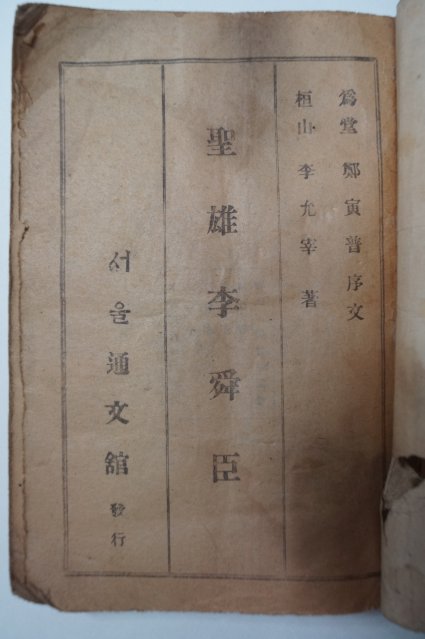 爲堂 鄭寅普 序文
桓山 李允宰 著
聖雄李舜臣
서울通文館 發行